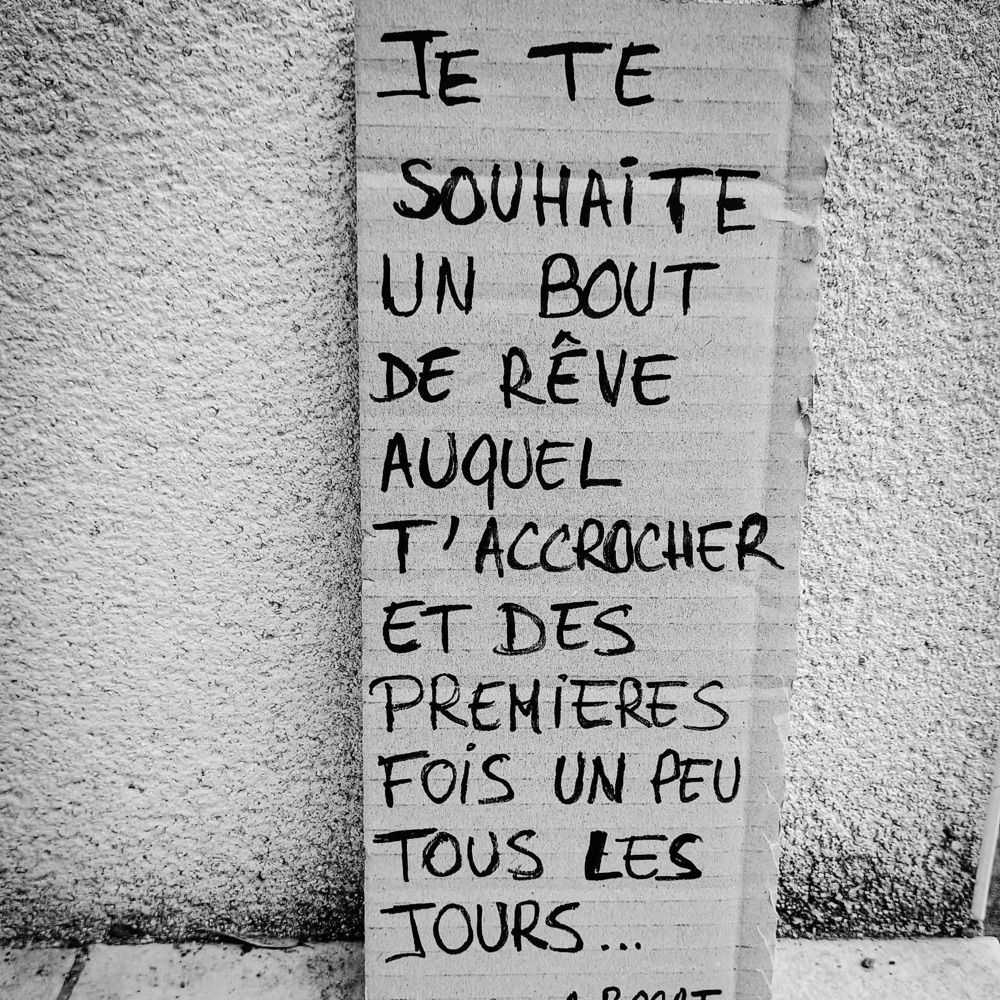 JE TE
SOUHAiTE
UN BOUT
DE RÊVE
AUQUEL
T'ACCROCHER
ET DES
PREMiERES
FOiS UN PEU
TOUS LES
JOURS...